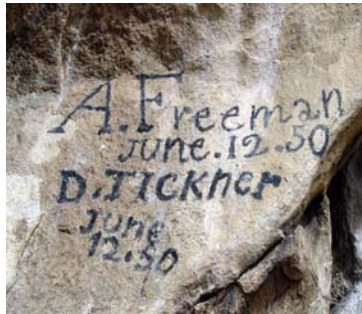 A. Freeman
June. 12. 50
D. TICKNer
June
12. 50